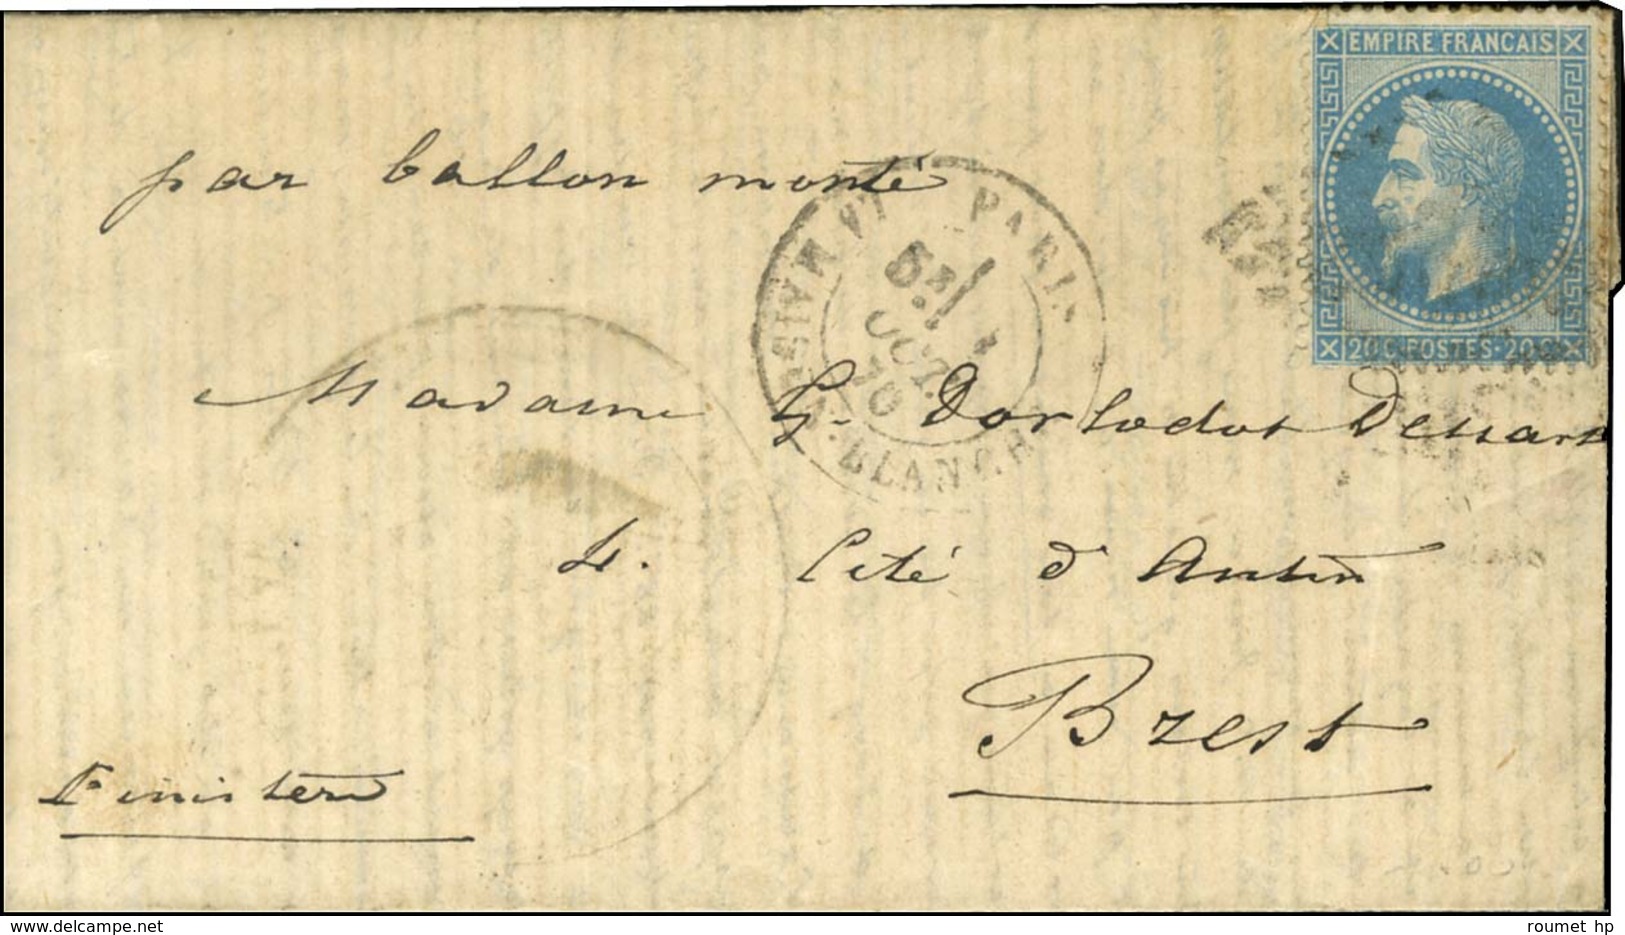 EMPIRE FRANCAIS
20 C. POSTES. 20 C.
par ballon monté
PARIS
5E/
OCT.
70
BLANCHE
Madame G. Dorlodot Dessart
4. Cité d'Antin
Brest
Finistère
roumet hp